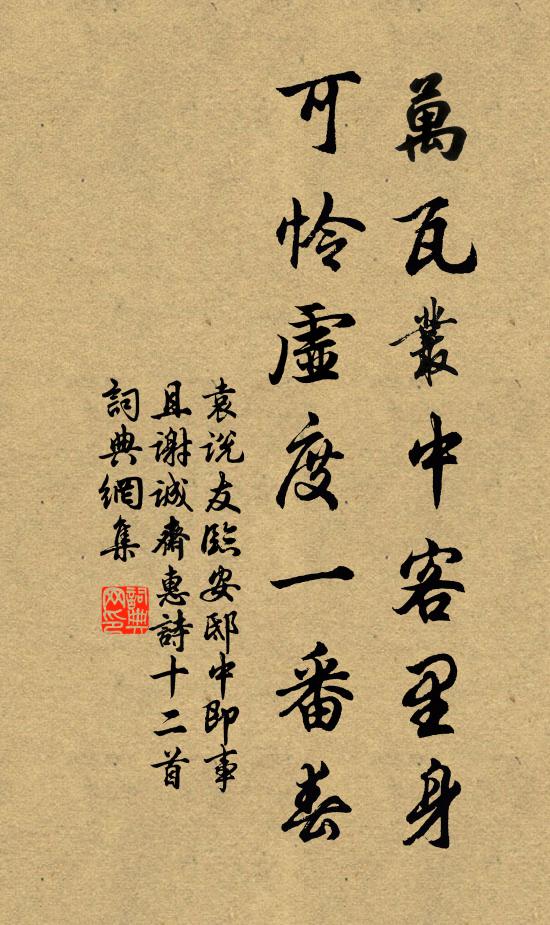 萬瓦叢中客里身
可怜虛度一番春
袁说友臨安邸中即事
且谢诚齋惠詩十二首
詞典網集
詞典网印